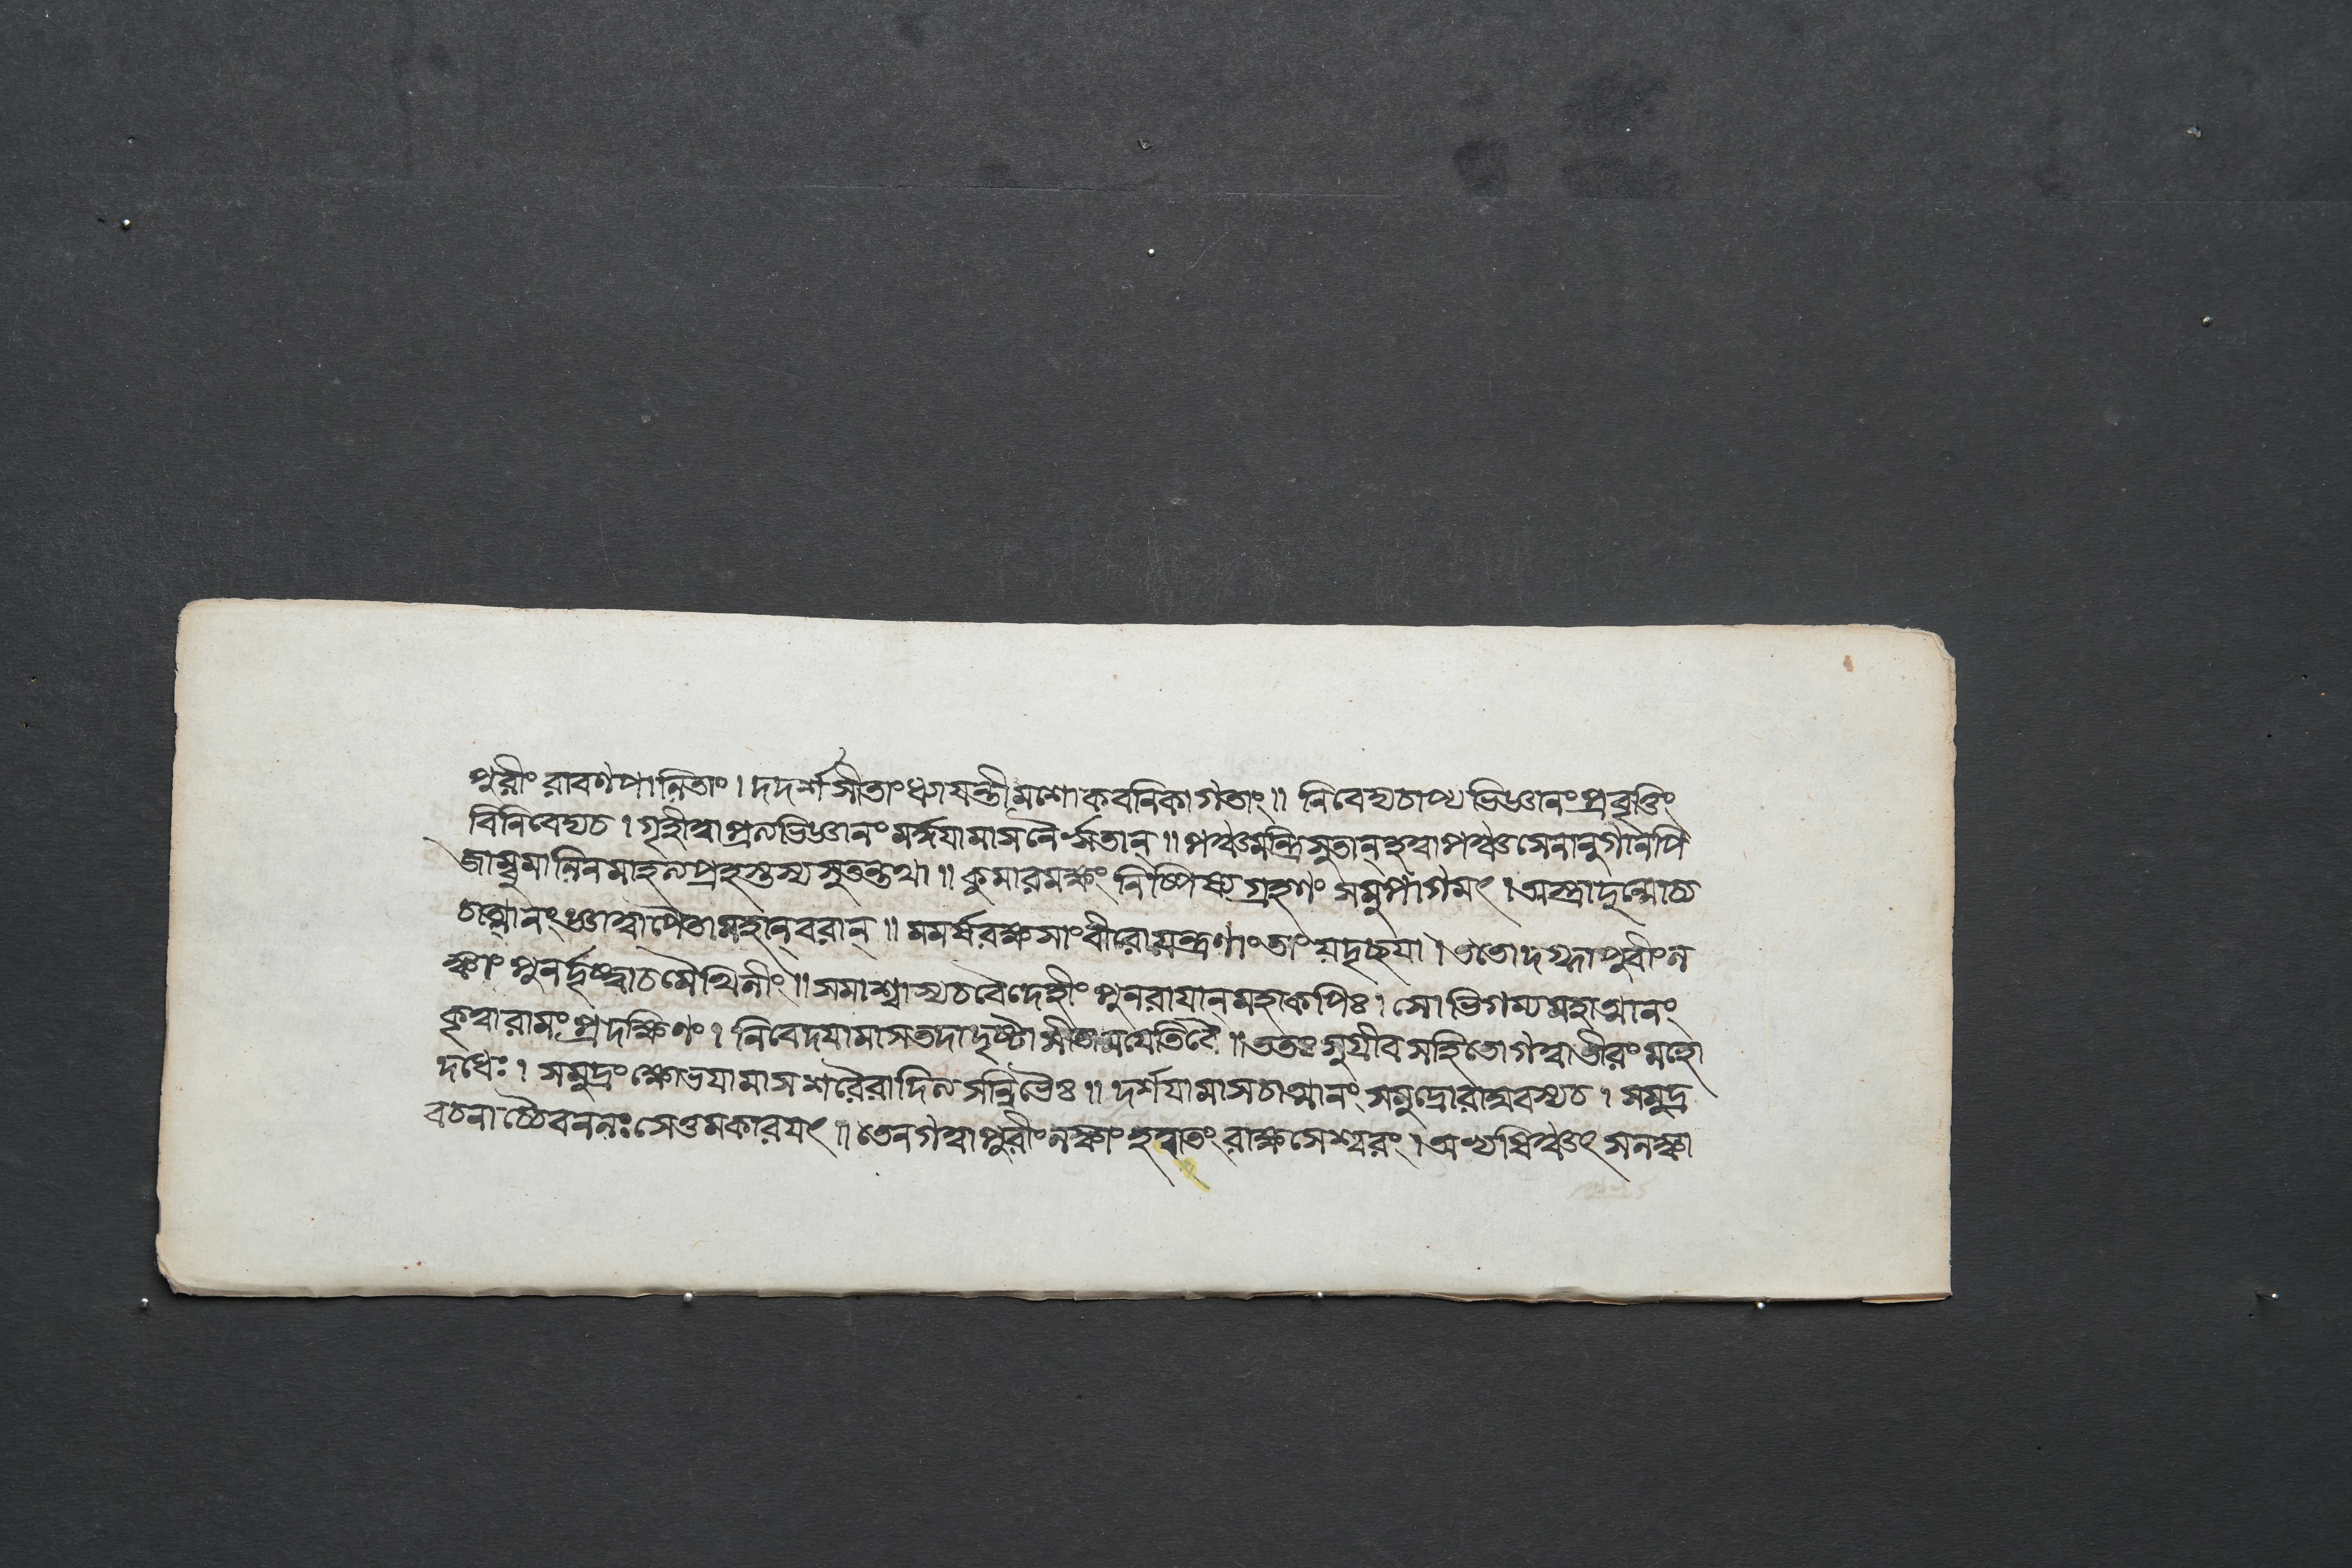 পুরীং রাবণপালিতাং। দদর্শ সীতাং ধ্যায়ন্তীমশোকবনিকাগতাং॥ নিবেদ্যচাপ্যভিজ্ঞানং প্রবৃত্তিং
বিনিবেদ্যচ। গৃহীত্বা প্রত্যভিজ্ঞানং মর্দ্দয়ামাস নৈরৃতান্॥ পঞ্চমন্ত্রিসুতান্ হত্বা পঞ্চসেনানুগানপি
জাম্বুমালিনমাহত্য প্রহস্তস্য সুতন্তথা॥ কুমারমক্ষং নিষ্পিষ্য গ্রহণং সমুপাগমৎ। অস্ত্রাদুন্মোচ্য
চাত্মানং জ্ঞাত্বা পৈতামহান্ বরান্॥ মমর্ষ রক্ষসাং বীরো যন্ত্রণাং তাং যদৃচ্ছয়া। ততো দগ্ধ্বা পুরীং ল
ঙ্কাং পুনর্দৃষ্ট্বাচ মৈথিলীং॥ সমাশ্বাস্যচ বৈদেহীং পুনরায়ান্মহাকপিঃ। সোভিগম্য মহাত্মানং
কৃত্বা রামং প্রদক্ষিণং। নিবেদয়ামাস তদা দৃষ্টা সীতা ময়েতি বৈ॥ ততঃ সুগ্রীবসহিতো গত্বা তীরং মহো
দধেঃ। সমুদ্রং ক্ষোভয়ামাস শরৈরাদিত্যসন্নিভৈঃ॥ দর্শয়ামাস চাত্মানং সমুদ্রো রাঘবস্যচ। সমুদ্র
বচনাচ্চৈব নলঃ সেতুমকারয়ৎ॥ তেন গত্বা পুরীং লঙ্কাং হত্বা তং রাক্ষসেশ্বরং। অভ্যষিঞ্চৎ সলঙ্কা